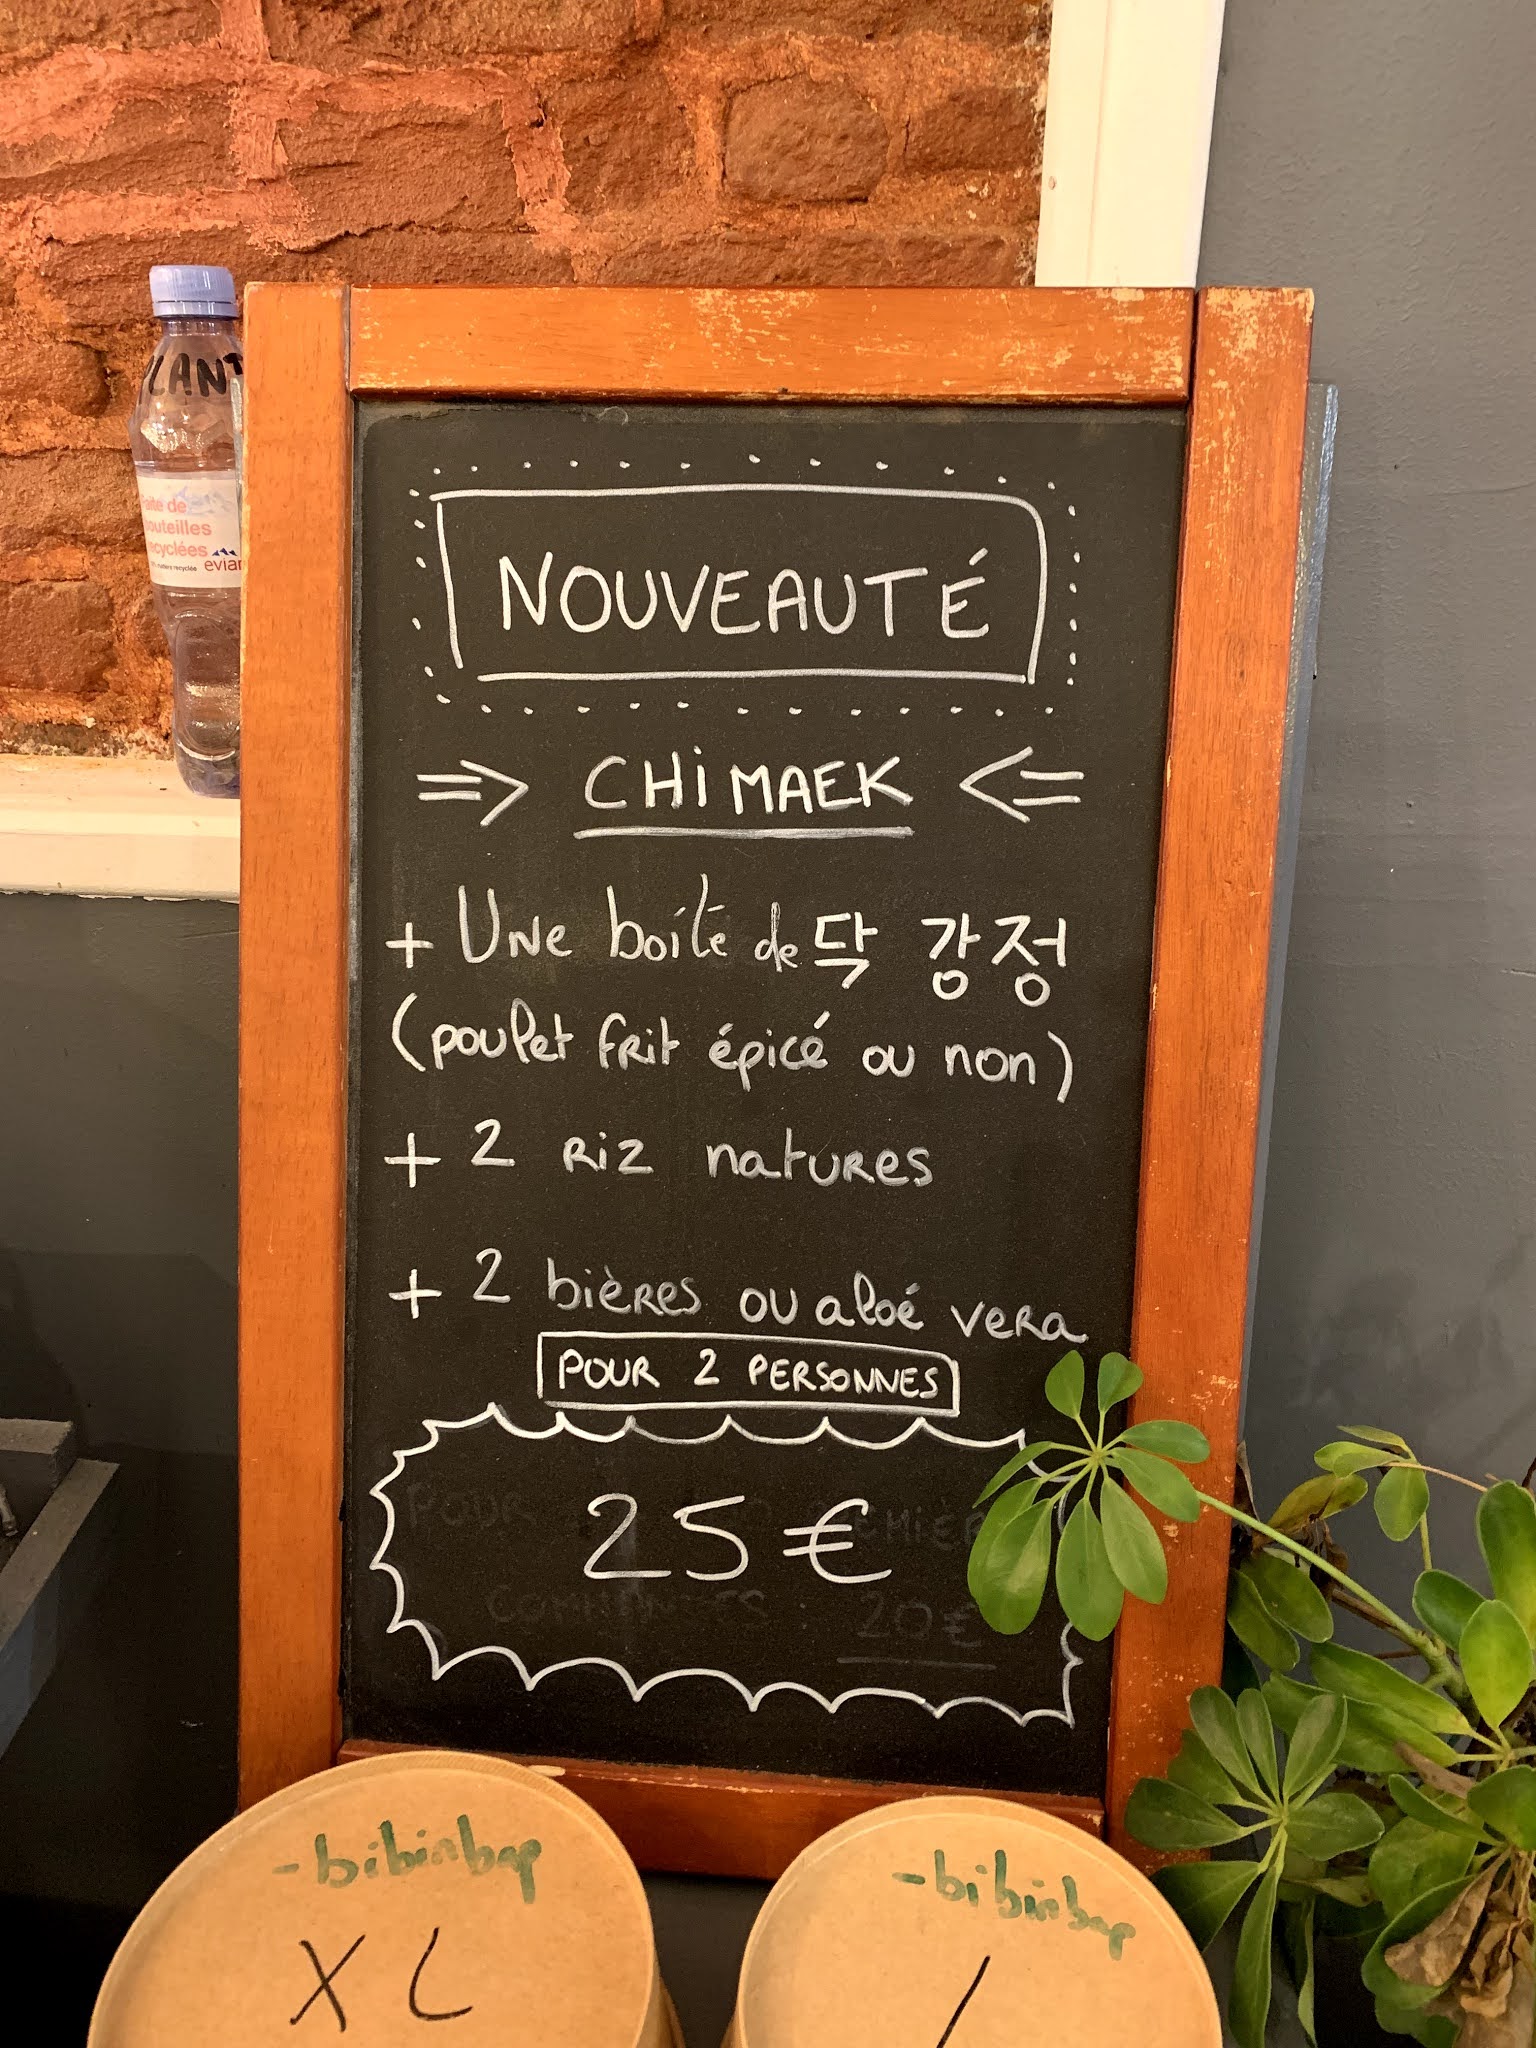 LANT
NOUVEAUTÉ
=> CHIMAEK <=
+ UNE boîte de 닥 강정
(poulet frit épicé ou non)
+ 2 RIZ natures
+ 2 bières ou aloé vera
POUR 2 PERSONNES
25 €
20 €
bouteilles
recyclées
evian
-bibimbap
XL
-bibimbap